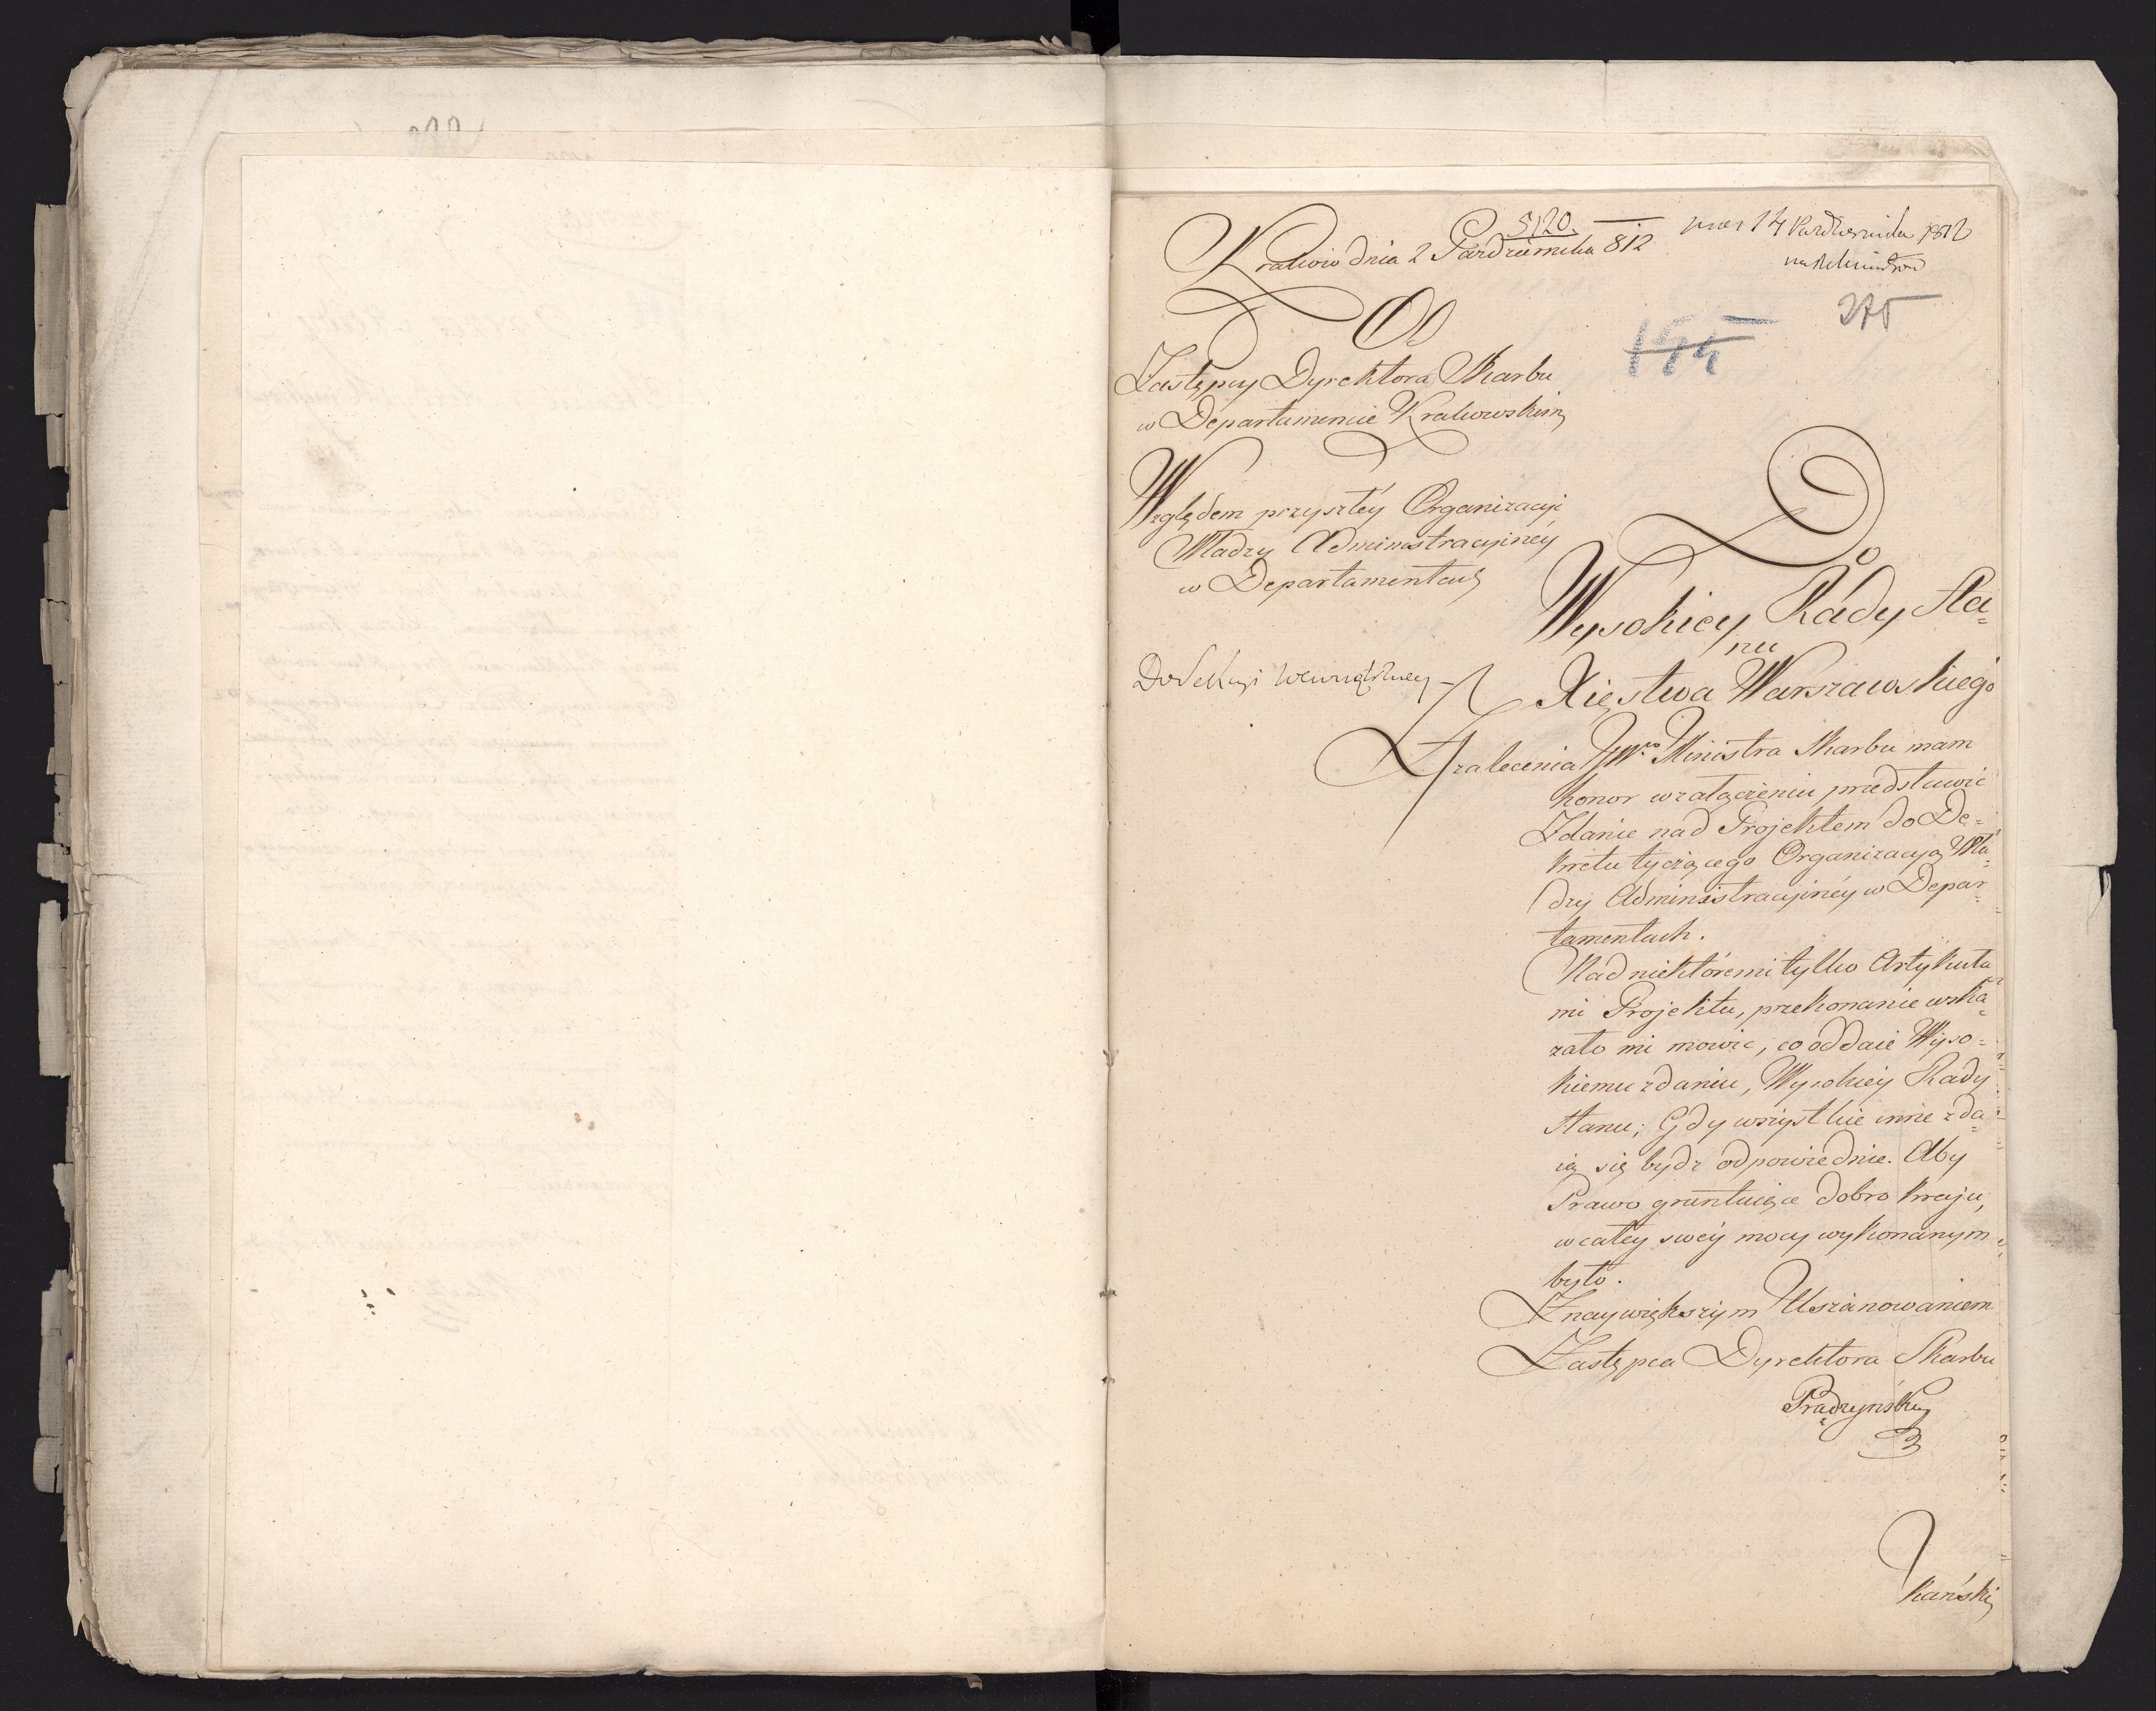 5120.
Kraków dnia 2 Pazdziernika 812
14 Pazdziernika 1812
275
Od
Zastępcy Dyrektora Skarbu
w Departamencie Krakowskim
Względem przyszłéy Organizacyi
Władzy Administracyinéy
w Departamentach
Do
Wysokiey Rady Sta=
nu
Xięstwa Warszawskiego
Do Sekcyi Wewnętrzney
Z zalecenia JWgo Ministra Skarbu mam
honor w załączeniu przedstawić
Zdanie nad Projektem do De=
kretu tyczącego Organizacyą Wła=
dzy Administracyinéy w Depar=
tamentach.
Nad niektóremi tylko Artykuła=
mi Projektu, przekonanie wska=
zało mi mowić, co oddaie Wyso=
kiemu zdaniu, Wysokiey Rady
Stanu; Gdy wszystkie inne zda=
ią się bydź odpowiednie. Aby
Prawo gruntuiące dobro kraju,
w całey swéy mocy wykonanym
było.
Z naywiększym Uszanowaniem
Zastępca Dyrektora Skarbu
Prądzyński